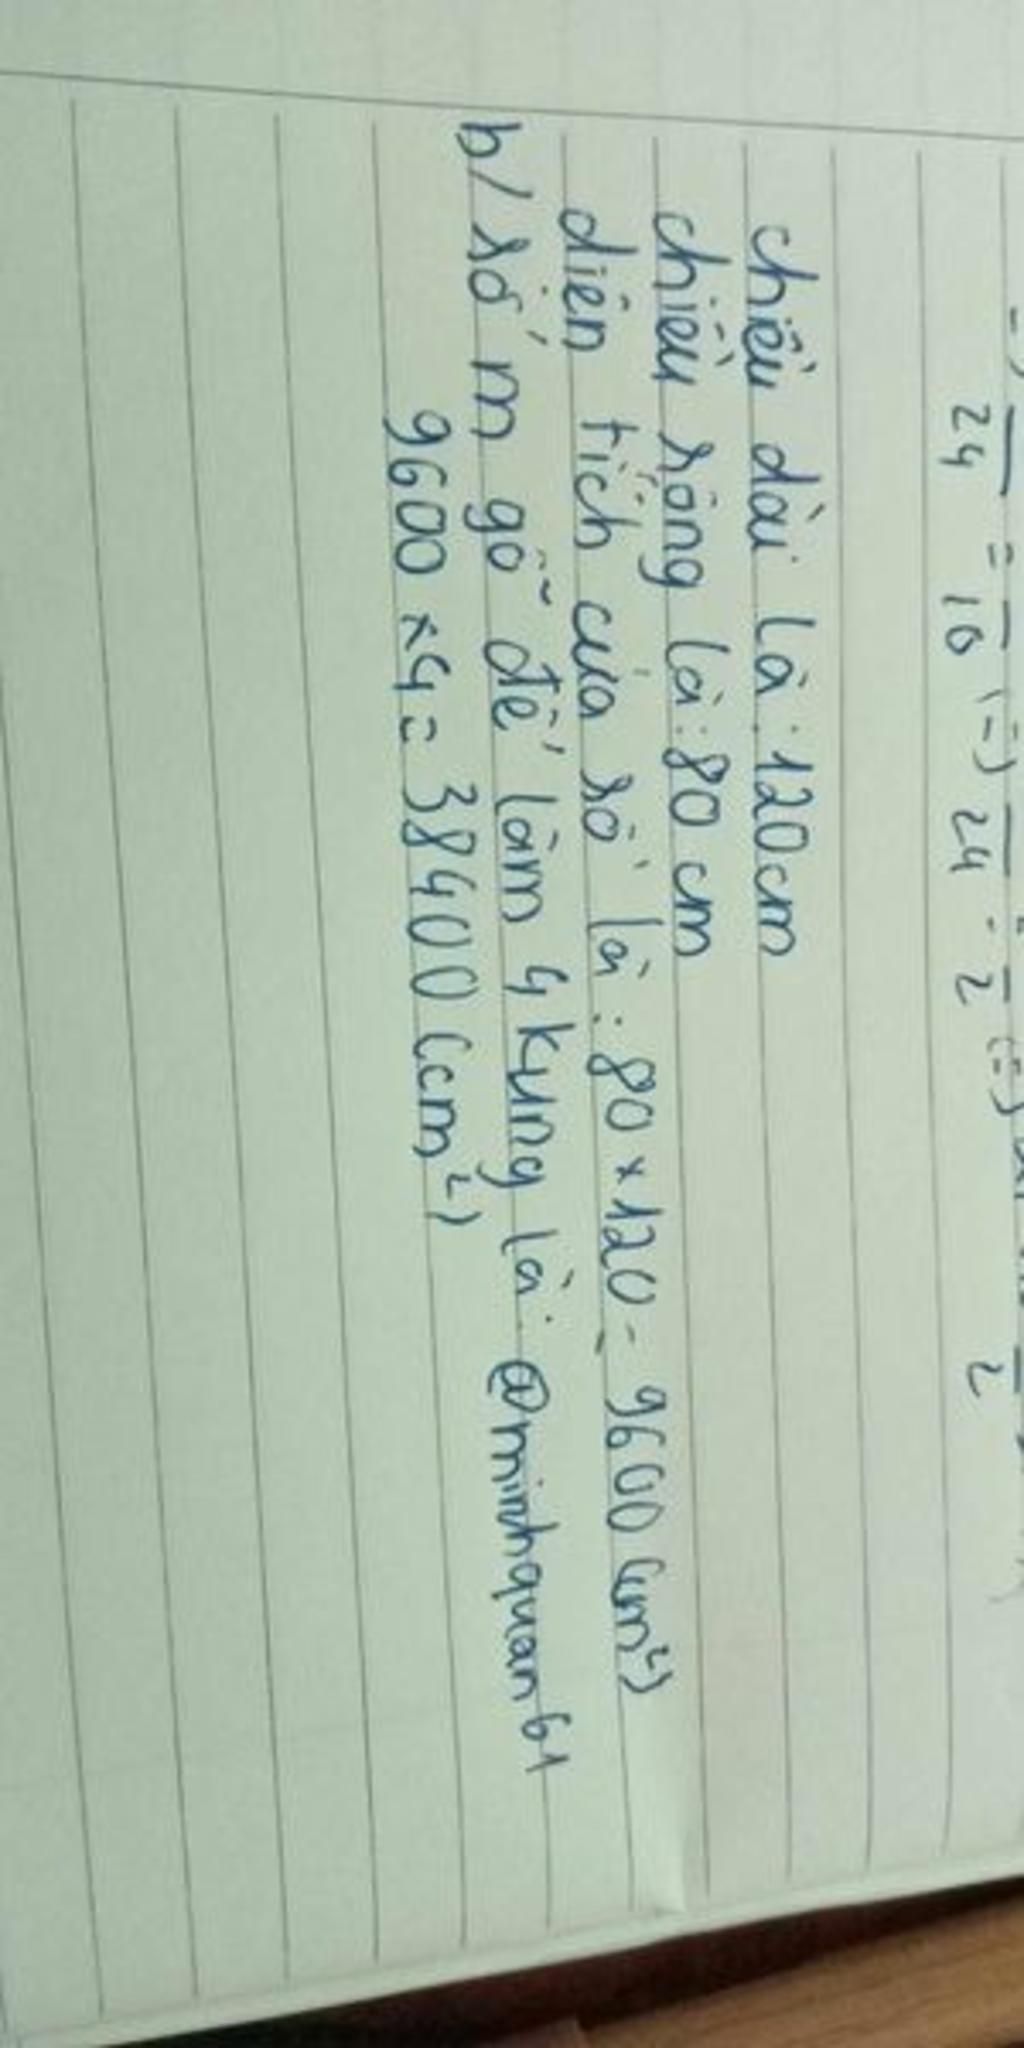 24 = 16 (-) 24 : 2 (=) 2
chiều dài là: 120cm
chiều rộng là: 80 cm
diện tích cửa sổ là: 80 × 120 = 9600 (cm²)
b/ số m gỗ để làm 4 kung là: @minhquan61
9600 × 4 = 38400 (cm²)